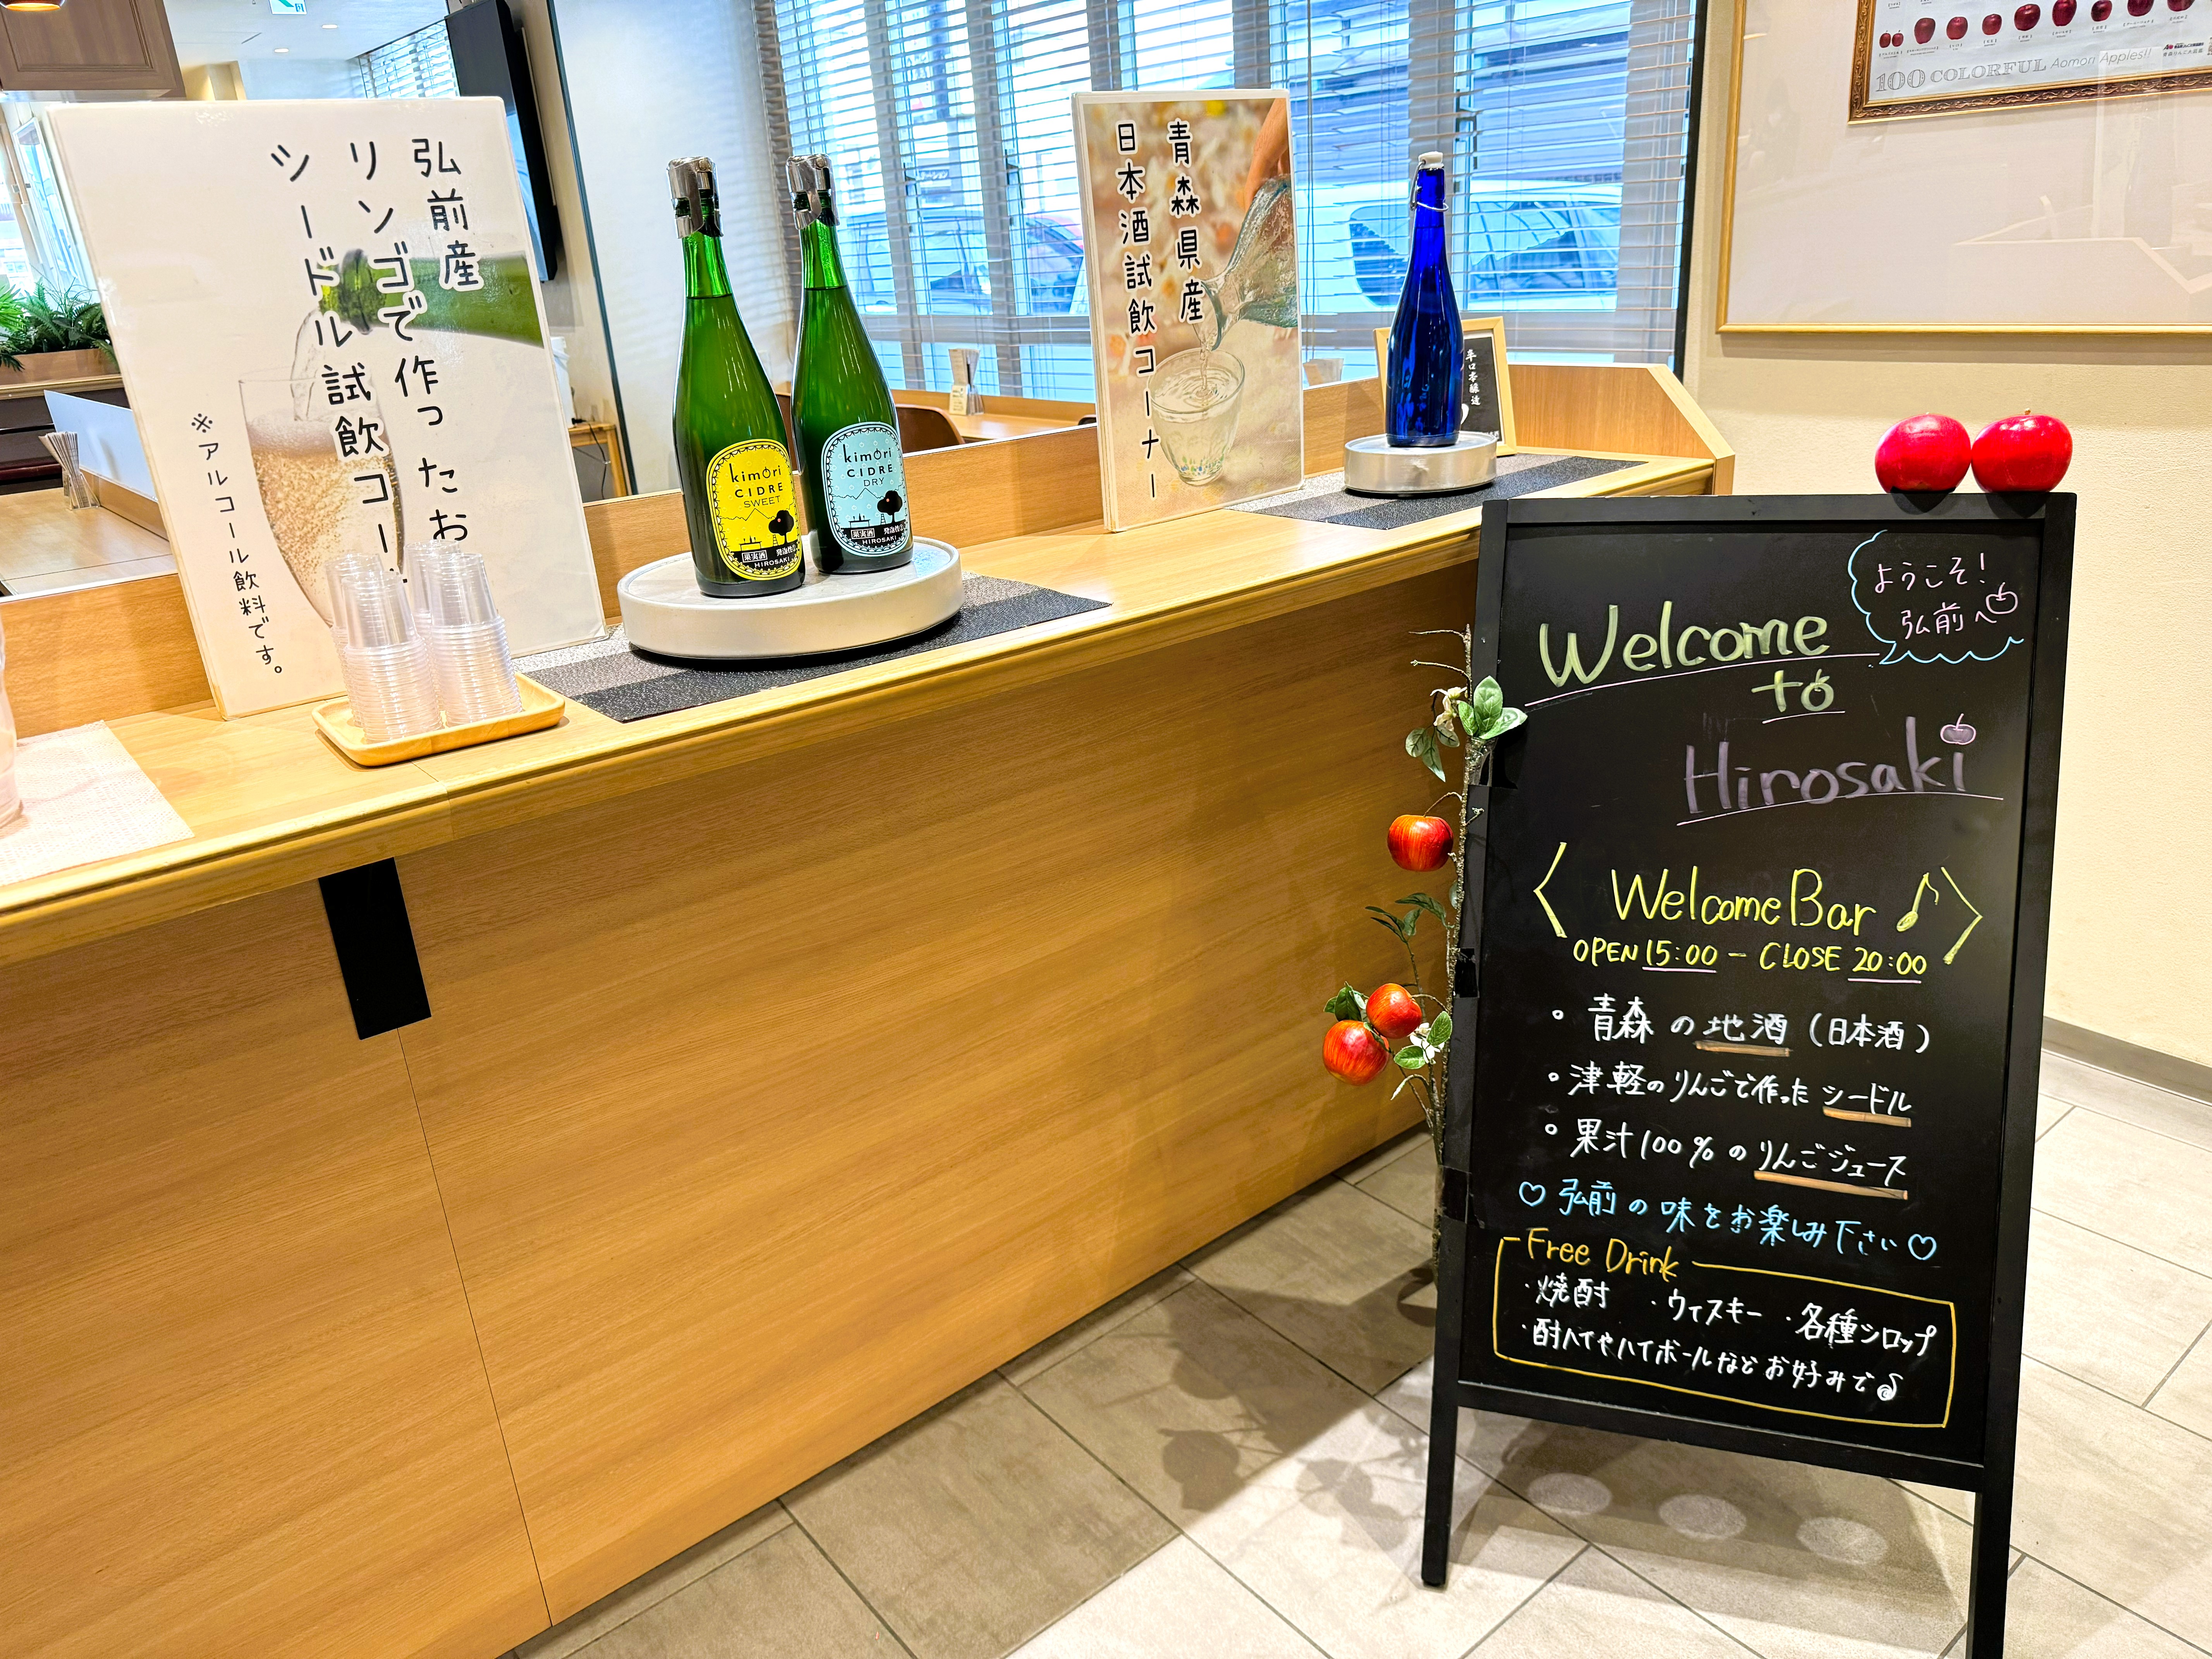 弘前産
リンゴで作ったお
シードル試飲コー
※アルコール飲料です。
kimori
CIDRE
SWEET
果実酒
HIROSAKI
kimori
CIDRE
DRY
果実酒
HIROSAKI
青森県産
日本酒試飲コーナー
100 COLORFUL Aomori Apples!!
ようこそ!
弘前へ
Welcome
to
Hirosaki
〈 Welcome Bar ♪ 〉
OPEN 15:00 - CLOSE 20:00
。青森の地酒(日本酒)
。津軽のりんごで作ったシードル
。果汁100%のりんごジュース
♡弘前の味をお楽しみ下さい♡
Free Drink
・焼酎 ・ウィスキー ・各種シロップ
・酎ハイやハイボールなどお好みで